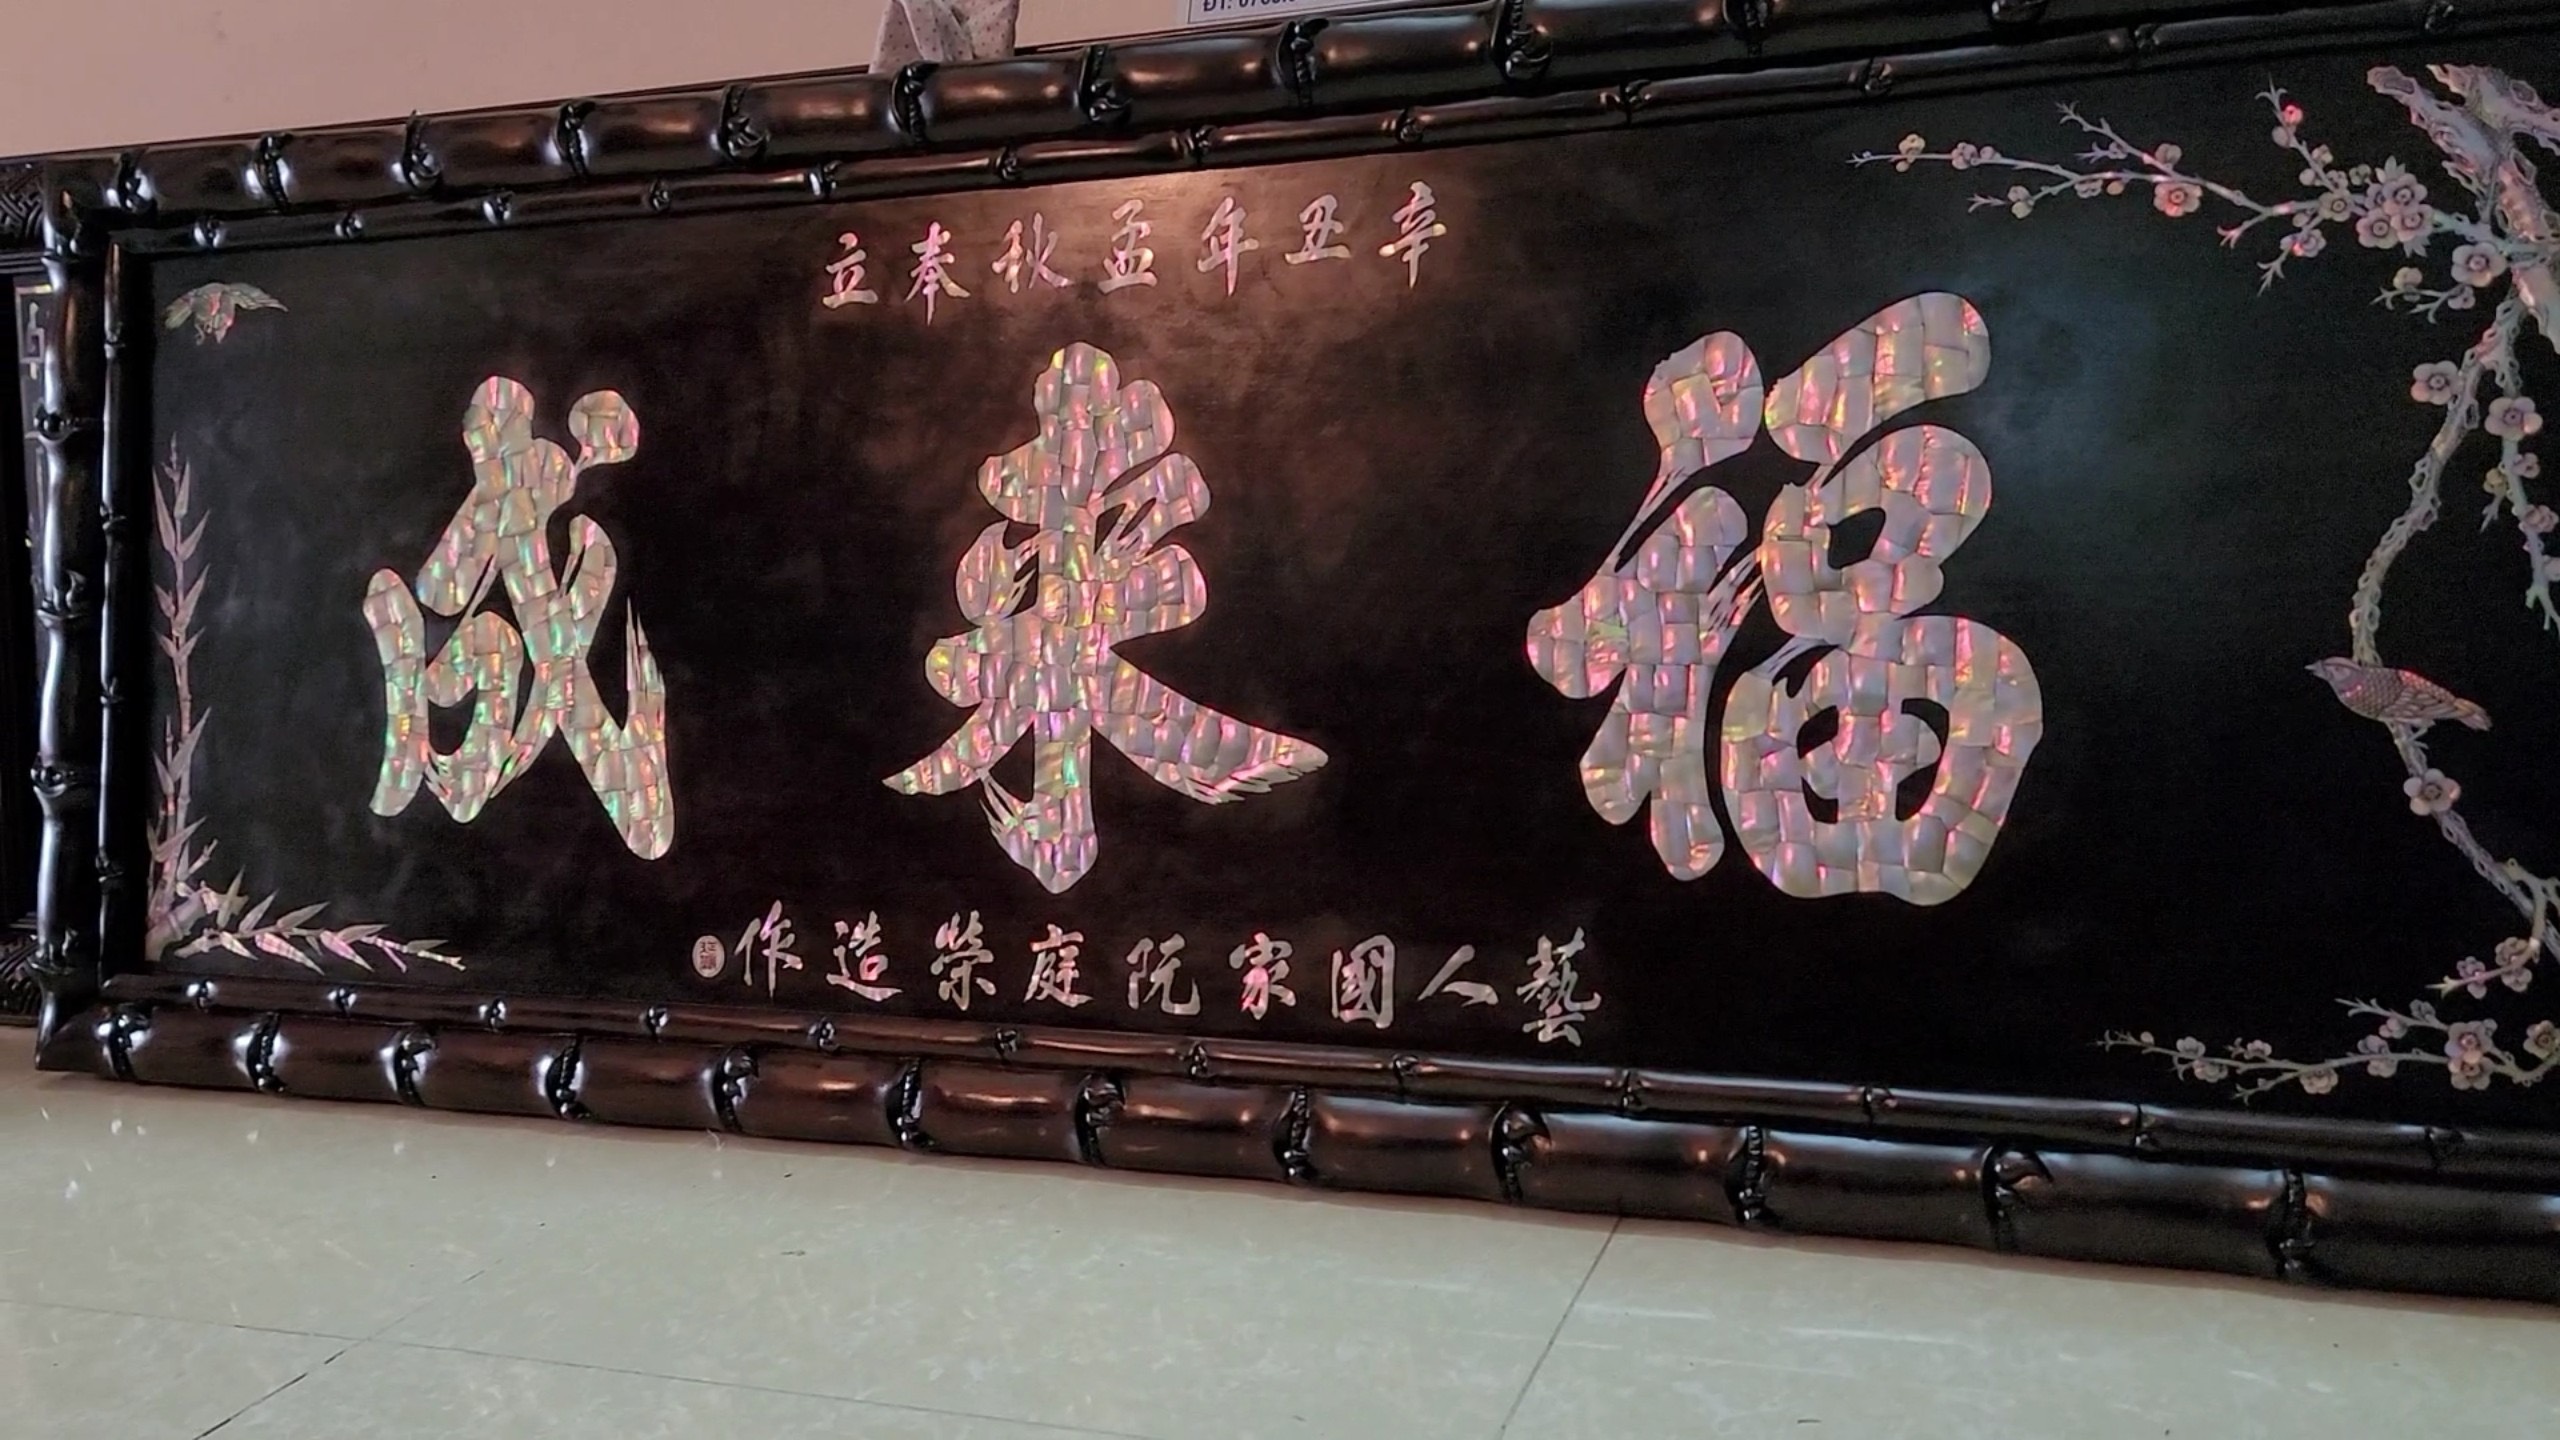 辛丑年孟秋奉立
福來成
藝人國家阮庭榮造作